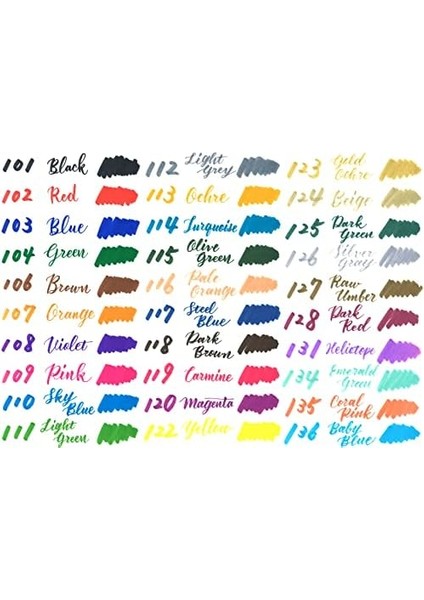 101 Black
102 Red
103 Blue
104 Green
106 Brown
107 Orange
108 Violet
109 Pink
110 Sky Blue
111 Light Green
112 Light Grey
113 Ochre
114 Turquoise
115 Olive Green
116 Pale Orange
117 Steel Blue
118 Dark Brown
119 Carmine
120 Magenta
122 Yellow
123 Gold Ochre
124 Beige
125 Dark Green
126 Silver Gray
127 Raw Umber
128 Dark Red
131
134 Emerald Green
135 Coral Pink
136 Baby Blue